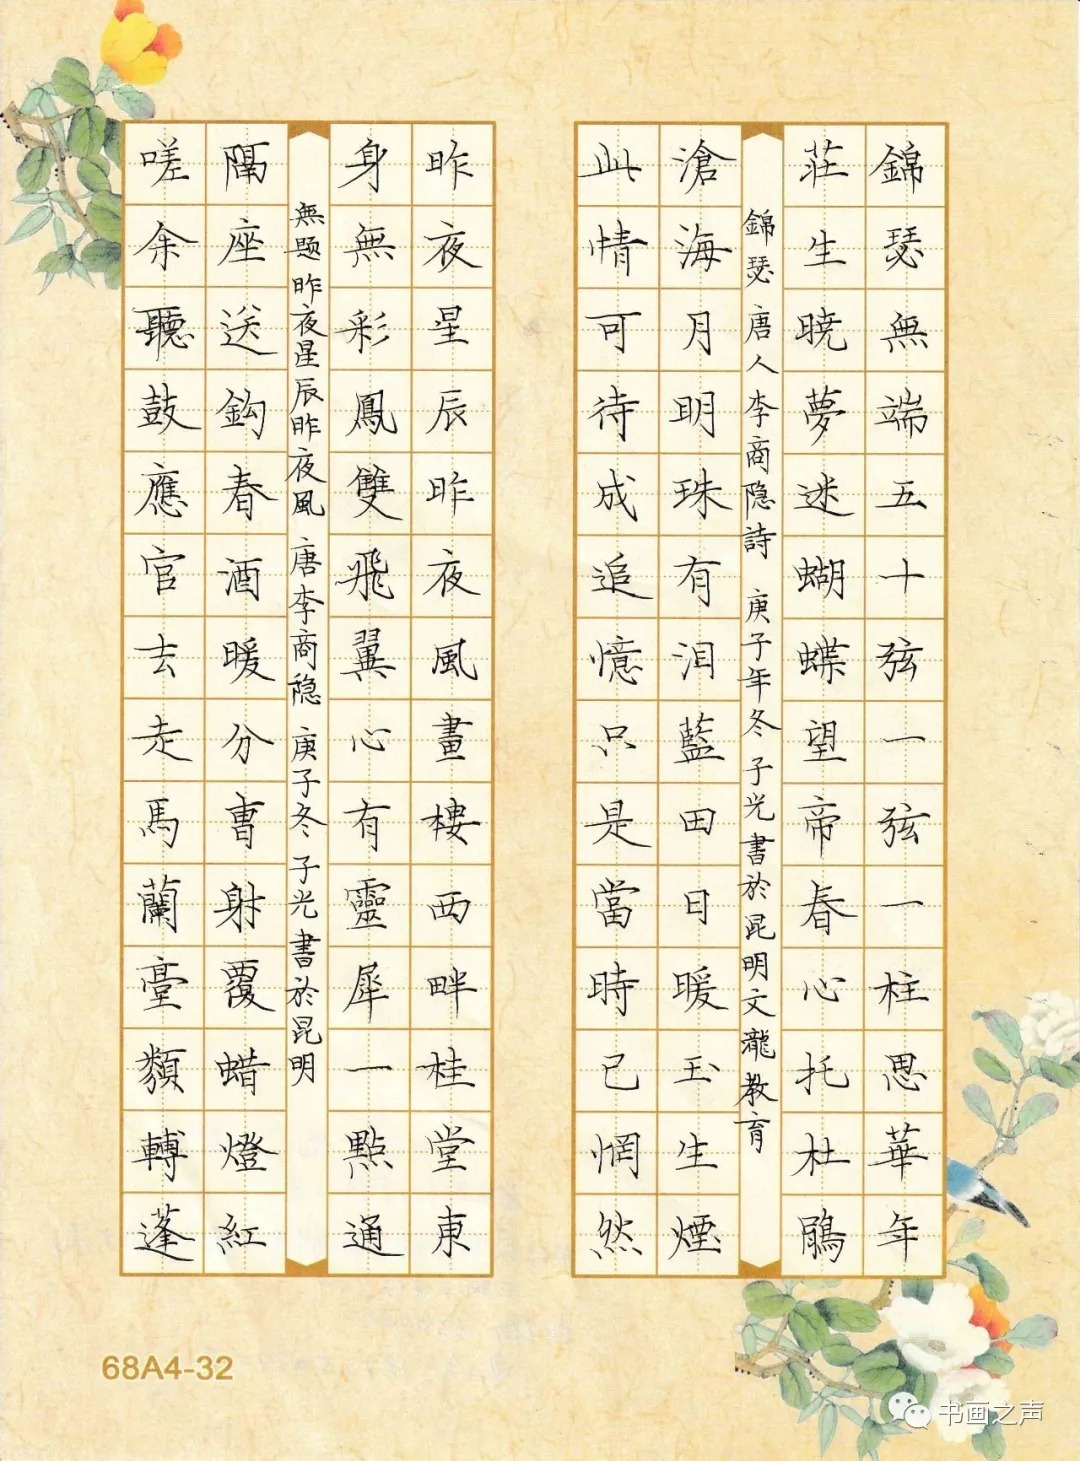 錦瑟無端五十弦一弦一柱思華年
莊生曉夢迷蝴蝶望帝春心托杜鵑
錦瑟 唐人李商隐詩 庚子年冬 子光書於昆明文龍教育
滄海月明珠有泪藍田日暖玉生煙
此情可待成追憶只是當時已惘然
昨夜星辰昨夜風畫樓西畔桂堂東
身無彩鳳雙飛翼心有靈犀一點通
無题 昨夜星辰昨夜風 唐李商隐 庚子冬 子光書於昆明
隔座送鈎春酒暖分曹射覆蜡燈紅
嗟余聽鼓應官去走馬蘭臺類轉蓬
68A4-32
书画之声